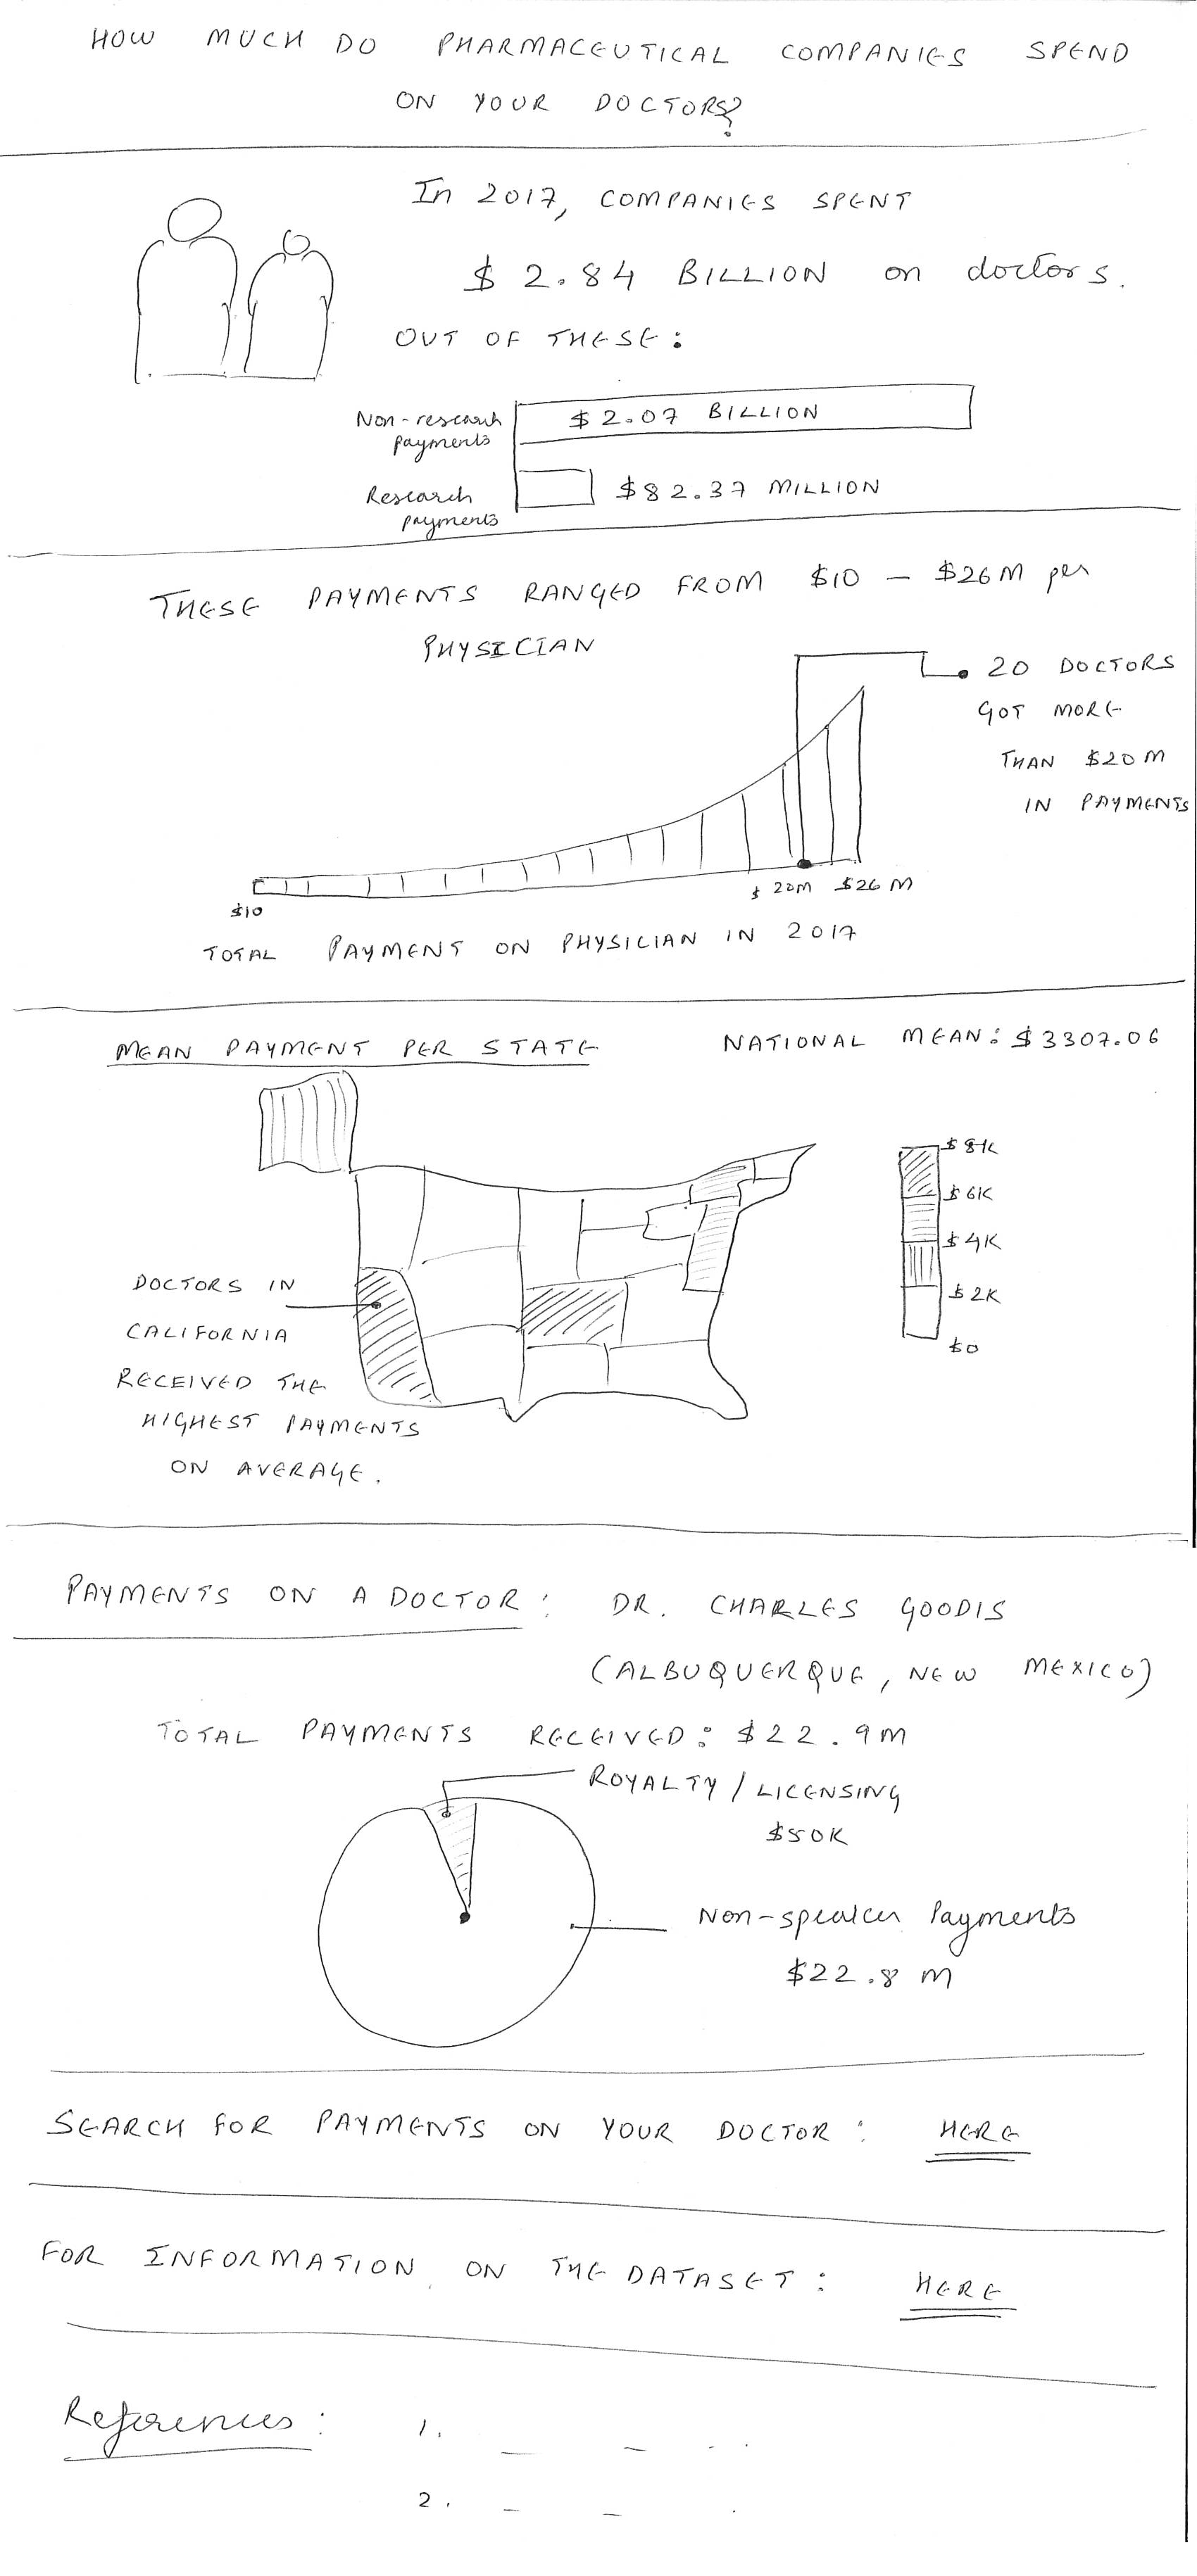 HOW MUCH DO PHARMACEUTICAL COMPANIES SPEND
ON YOUR DOCTORS?
In 2017, COMPANIES SPENT
$ 2.84 BILLION on doctors.
OUT OF THESE:
Non-research
payments
$2.07 BILLION
Research
payments
$82.37 MILLION
THESE PAYMENTS RANGED FROM $10 - $26M per
PHYSICIAN
20 DOCTORS
GOT MORE
THAN $20M
IN PAYMENTS
$10
$ 20M
$26 M
TOTAL PAYMENT ON PHYSICIAN IN 2017
MEAN PAYMENT PER STATE
NATIONAL MEAN: $3307.06
$8K
$6K
$4K
$2K
$0
DOCTORS IN
CALIFORNIA
RECEIVED THE
HIGHEST PAYMENTS
ON AVERAGE.
PAYMENTS ON A DOCTOR: DR. CHARLES GOODIS
(ALBUQUERQUE, NEW MEXICO)
TOTAL PAYMENTS RECEIVED: $22.9M
ROYALTY / LICENSING
$50K
Non-speaker Payments
$22.8 M
SEARCH FOR PAYMENTS ON YOUR DOCTOR: HERE
FOR INFORMATION ON THE DATASET: HERE
References:
1.
2.